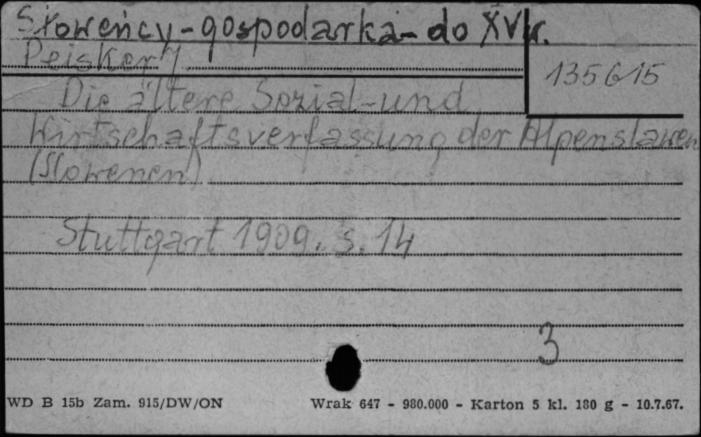 Słoweńcy - gospodarka - do XV w.
Peisker J.
135615
Die ältere Sozial- und
Wirtschaftsverfassung der Alpenslawen
(Slowenen)
Stuttgart 1909. s. 14
3
WD B 15b Zam. 915/DW/ON Wrak 647 - 980.000 - Karton 5 kl. 180 g - 10.7.67.